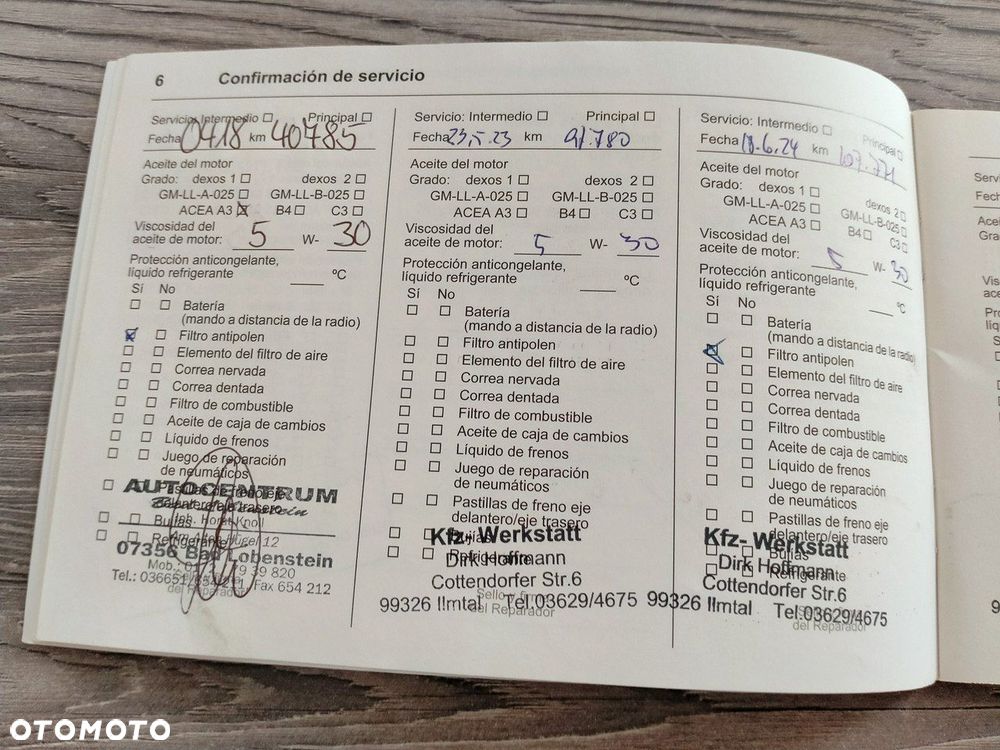 6 Confirmación de servicio
Servicio: Intermedio Principal
Fecha 0418 km 40785
Aceite del motor
Grado: dexos 1 dexos 2
GM-LL-A-025 GM-LL-B-025
ACEA A3 B4 C3
Viscosidad del
aceite de motor: 5 W- 30
Protección anticongelante,
líquido refrigerante ºC
Sí No
Batería
(mando a distancia de la radio)
Filtro antipolen
Elemento del filtro de aire
Correa nervada
Correa dentada
Filtro de combustible
Aceite de caja de cambios
Líquido de frenos
Juego de reparación
de neumáticos
Pastillas de freno eje
delantero/eje trasero
Bujías
Refrigerante
AUTOCENTRUM
Inh. Horst Knoll
07356 Bad Lobenstein
Fax 654 212
del Reparador
Servicio: Intermedio Principal
Fecha 23.5.23 km 91.780
Aceite del motor
Grado: dexos 1 dexos 2
GM-LL-A-025 GM-LL-B-025
ACEA A3 B4 C3
Viscosidad del
aceite de motor: 5 W- 30
Protección anticongelante,
líquido refrigerante ºC
Sí No
Batería
(mando a distancia de la radio)
Filtro antipolen
Elemento del filtro de aire
Correa nervada
Correa dentada
Filtro de combustible
Aceite de caja de cambios
Líquido de frenos
Juego de reparación
de neumáticos
Pastillas de freno eje
delantero/eje trasero
Bujías
Refrigerante
Kfz-Werkstatt
Dirk Hoffmann
Cottendorfer Str.6
99326 Ilmtal Tel.03629/4675
Sello y firma
del Reparador
Servicio: Intermedio Principal
Fecha 18.6.24 km 107.771
Aceite del motor
Grado: dexos 1 dexos 2
GM-LL-A-025 GM-LL-B-025
ACEA A3 B4 C3
Viscosidad del
aceite de motor: 5 W- 30
Protección anticongelante,
líquido refrigerante ºC
Sí No
Batería
(mando a distancia de la radio)
Filtro antipolen
Elemento del filtro de aire
Correa nervada
Correa dentada
Filtro de combustible
Aceite de caja de cambios
Líquido de frenos
Juego de reparación
de neumáticos
Pastillas de freno eje
delantero/eje trasero
Bujías
Refrigerante
Kfz-Werkstatt
Dirk Hoffmann
Cottendorfer Str.6
99326 Ilmtal Tel.03629/4675
del Reparador
OTOMOTO